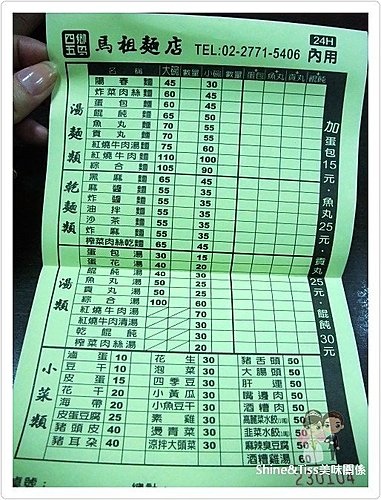 四鄉五島 馬祖麵店 TEL:02-2771-5406 24H 內用
名稱 大碗 數量 小碗 數量 蛋包 魚丸 貢丸 餛飩
湯麵類
陽春麵 45 30
炸菜肉絲麵 60 45
蛋包麵 60 45
餛飩麵 65 50
魚丸麵 70 55
貢丸麵 70 55
紅燒牛肉湯麵 75 60
紅燒牛肉麵 110 100
綜合麵 105 90
乾麵類
黑麻麵 60 45
麻醬麵 60 45
炸醬麵 60 45
油拌麵 60 45
沙茶麵 60 45
炸麻麵 60 45
榨菜肉絲乾麵 65 50
湯類
蛋包湯 30 15
蛋花湯 40 20
餛飩湯 40 30
魚丸湯 50 25
貢丸湯 50 25
綜合湯 100 60
紅燒牛肉湯 30
紅燒牛肉清湯 70
乾餛飩 30
榨菜肉絲湯 20
加蛋包15元．魚丸25元．貢丸25元．餛飩30元
小菜類
滷蛋 10 花生 30 豬舌頭 50
豆干 10 泡菜 30 大腸頭 50
皮蛋 15 四季豆 30 肝連 50
花干 20 小黃瓜 30 嘴邊肉 50
海帶 20 小魚豆干 30 酒糟肉 50
皮蛋豆腐 25 素雞 30 高麗菜水餃 50
豬頭皮 40 燙青菜 30 韭菜水餃 50
豬耳朵 40 涼拌大頭菜 30 麻辣臭豆腐 50
酒糟雞湯 60
桌號: 總計
230104
Shine&Tiss美味關係